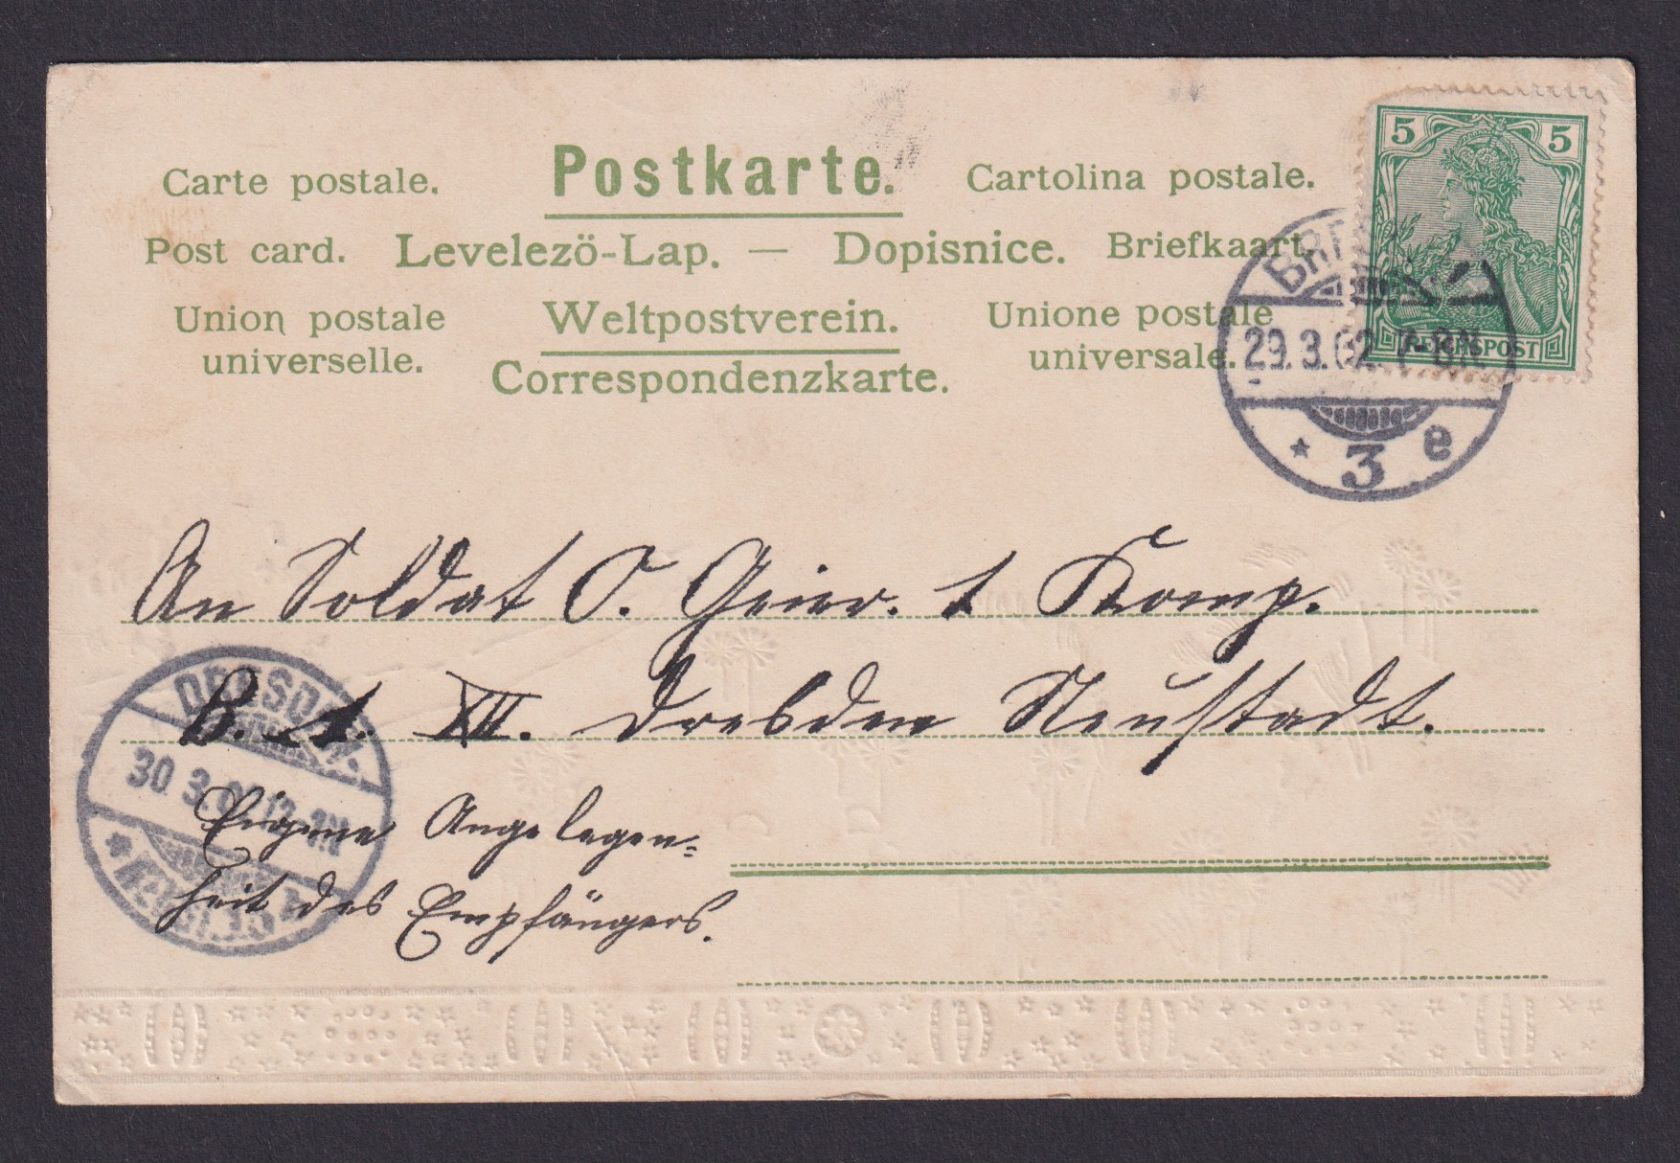 Carte postale. Postkarte. Cartolina postale.
Post card. Levelezö-Lap. — Dopisnice. Briefkaart.
Union postale universelle. Weltpostverein. Unione postale universale.
Correspondenzkarte.
5 5
REICHSPOST
29.3.02 7-8N
* 3 e
An Soldat O. Geier. 1 Komp.
B. 1. XII. Dresden Neustadt.
Eigene Angelegen=
heit des Empfängers.
DRESDEN
30 3.